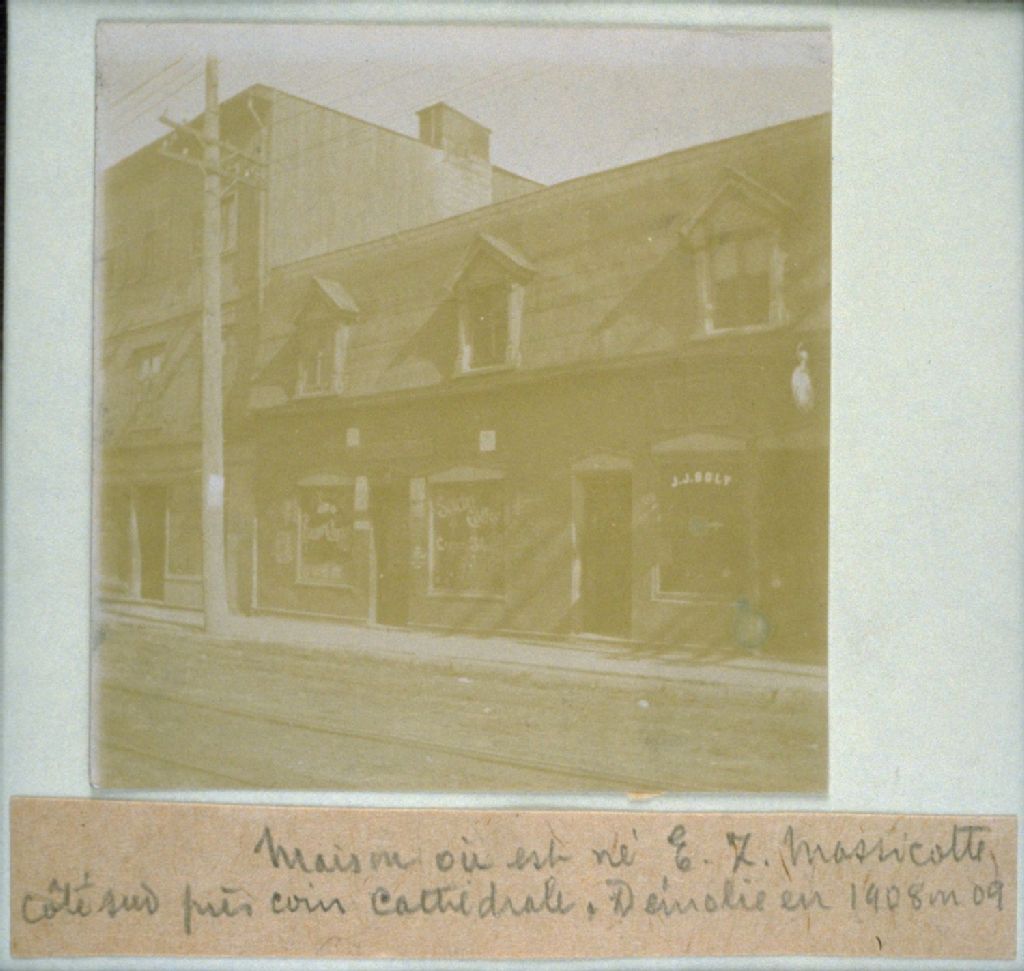 J.J. GOLF
Maison où est né E. Z. Massicotte,
côté sud près coin Cathédrale. Démolie en 1908 ou 09